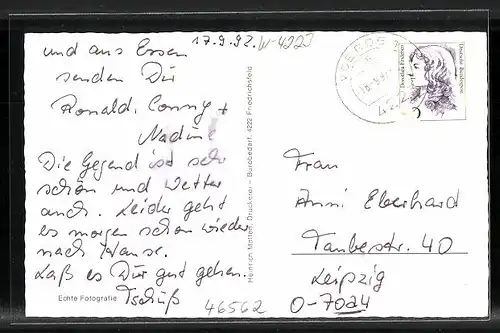 17.9.92. W-4223
und aus Essen
senden Dir
Ronald, Conny +
Nadine
Die Gegend ist sehr
schön und Wetter
auch. Leider geht
es morgen schon wieder
nach Hause.
Laß es Dir gut gehen.
Tschüß
Echte Fotografie
46562
Heinrich Druckerei - Bürobedarf, 4222 Friedrichsfeld
Deutsche Bundespost
Frau
Anni Eberhard
Taubestr. 40
Leipzig
O-7024